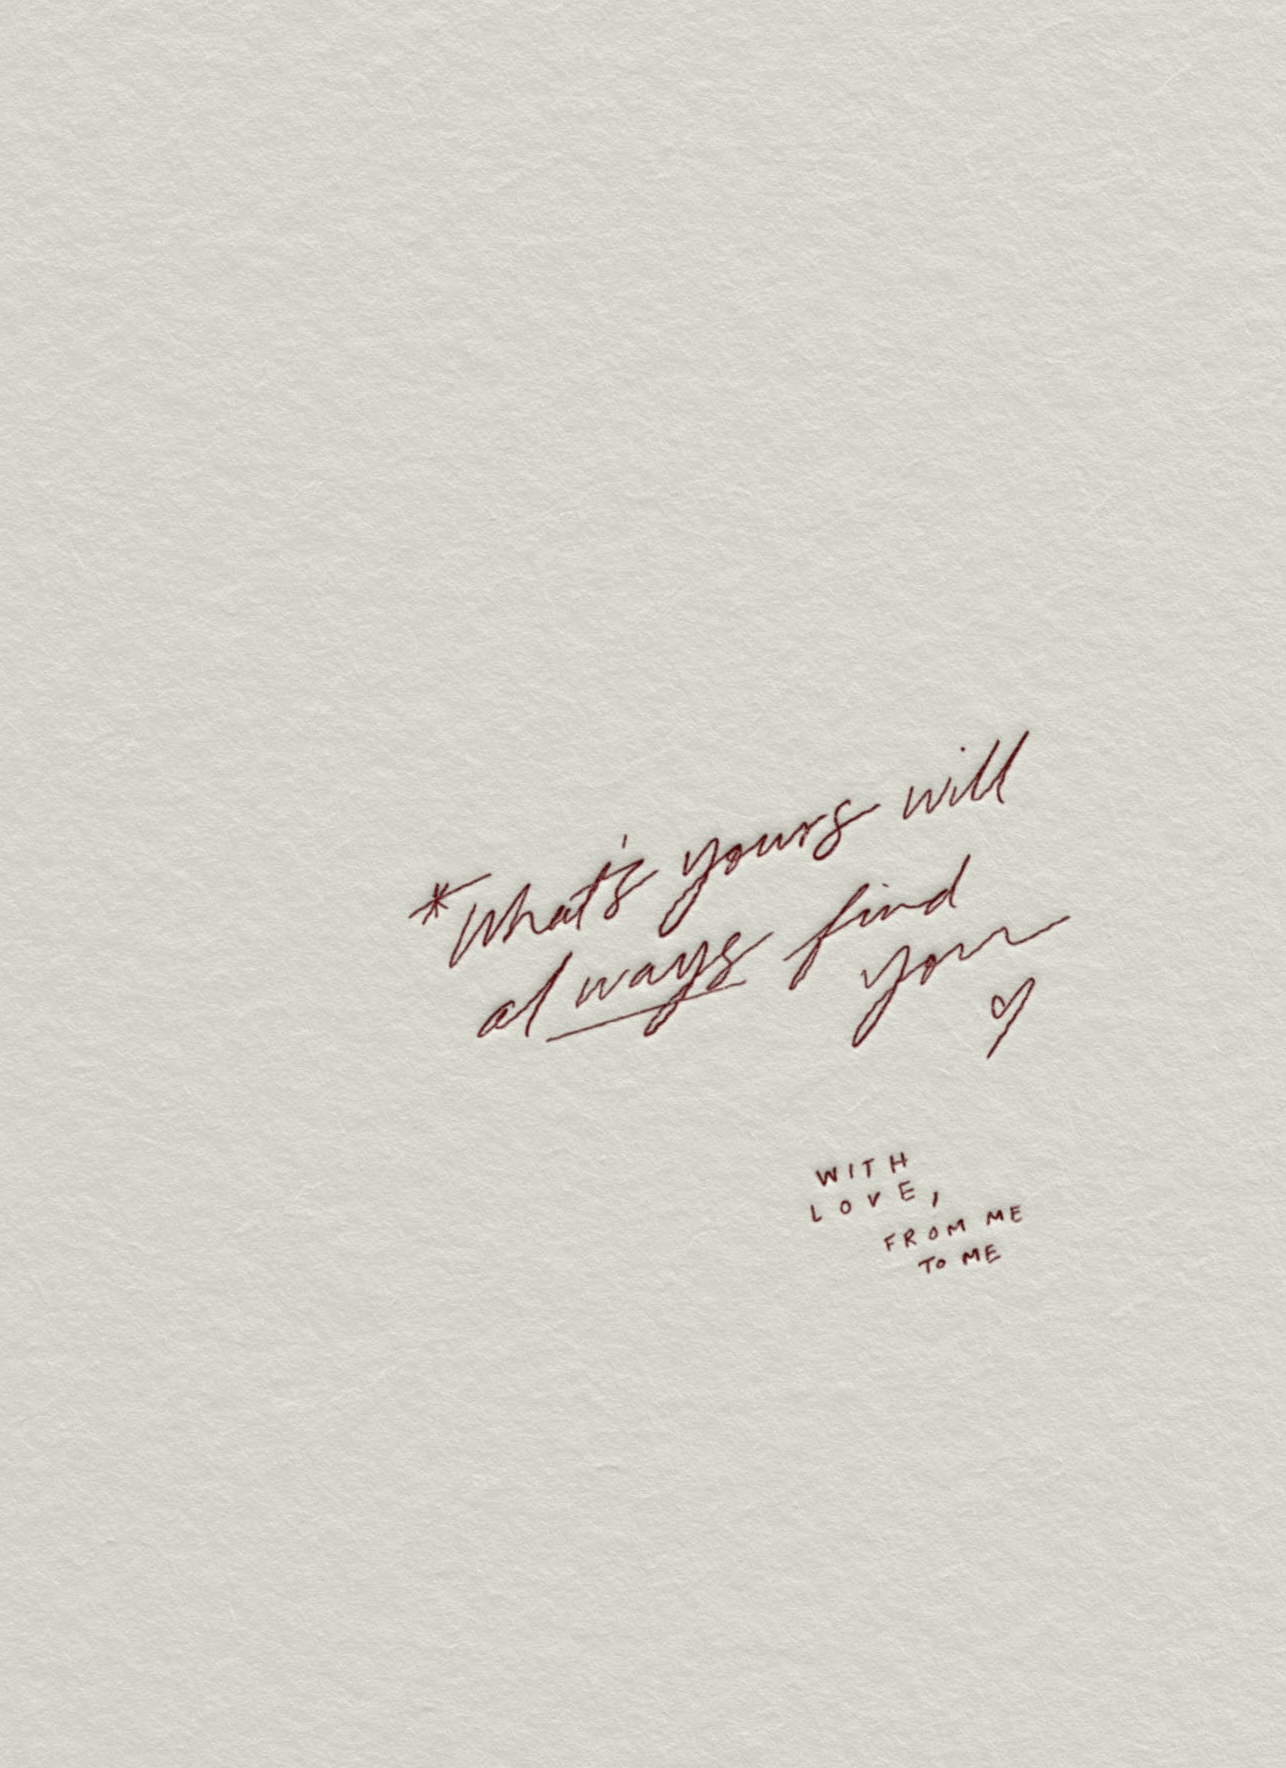 *What's yours will
always find
you
WITH
LOVE,
FROM ME
TO ME